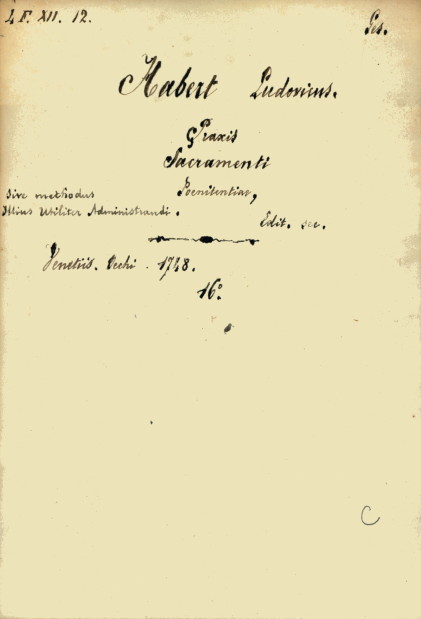 L F. XII. 12.
Habert Ludovicus.
Praxis
Sacramenti
Poenitentiae,
Sive methodus
Illius Utiliter Administrandi.
Edit. sec.
Venetiis. Occhi. 1748.
16°.
C